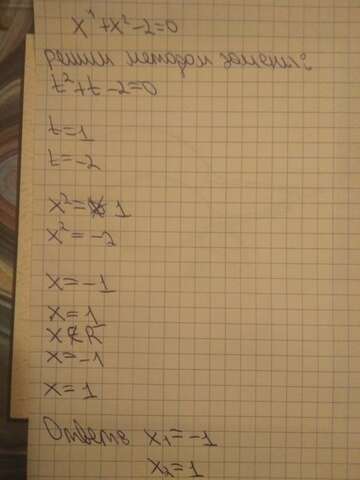 x⁴+x²-2=0
решим методом замены:
t²+t-2=0
t=1
t=-2
x²=1
x²=-2
x=-1
x=1
x∉R
x=-1
x=1
Ответ: x₁=-1
x₂=1